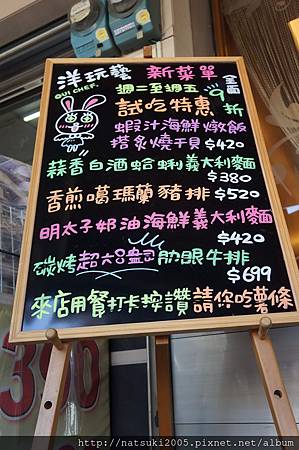 洋玩藝 新菜單
OUI CHEF.
週二至週五 全面9折
試吃特惠
蝦汁海鮮燉飯
搭炙燒干貝 $420
蒜香白酒蛤蜊義大利麵
$380
香煎噶瑪蘭豬排 $520
明太子奶油海鮮義大利麵
$420
碳烤超大8盎司肋眼牛排
$699
來店用餐打卡按讚請你吃薯條
390
http://natsuki2005.pixnet.net/album